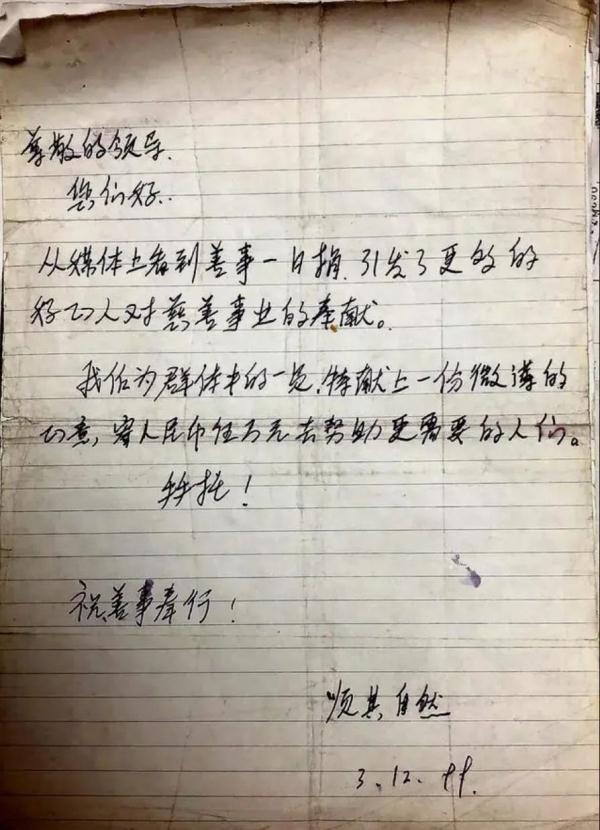 尊敬的领导.
您们好..
从媒体上看到善事一日捐.引发了更多的
好心人对慈善事业的奉献。
我作为群体中的一员,特献上一份微薄的
心意,寄人民币伍万元去帮助更需要的人们。
拜托!
祝善事奉行!
顺其自然
3.12.99.